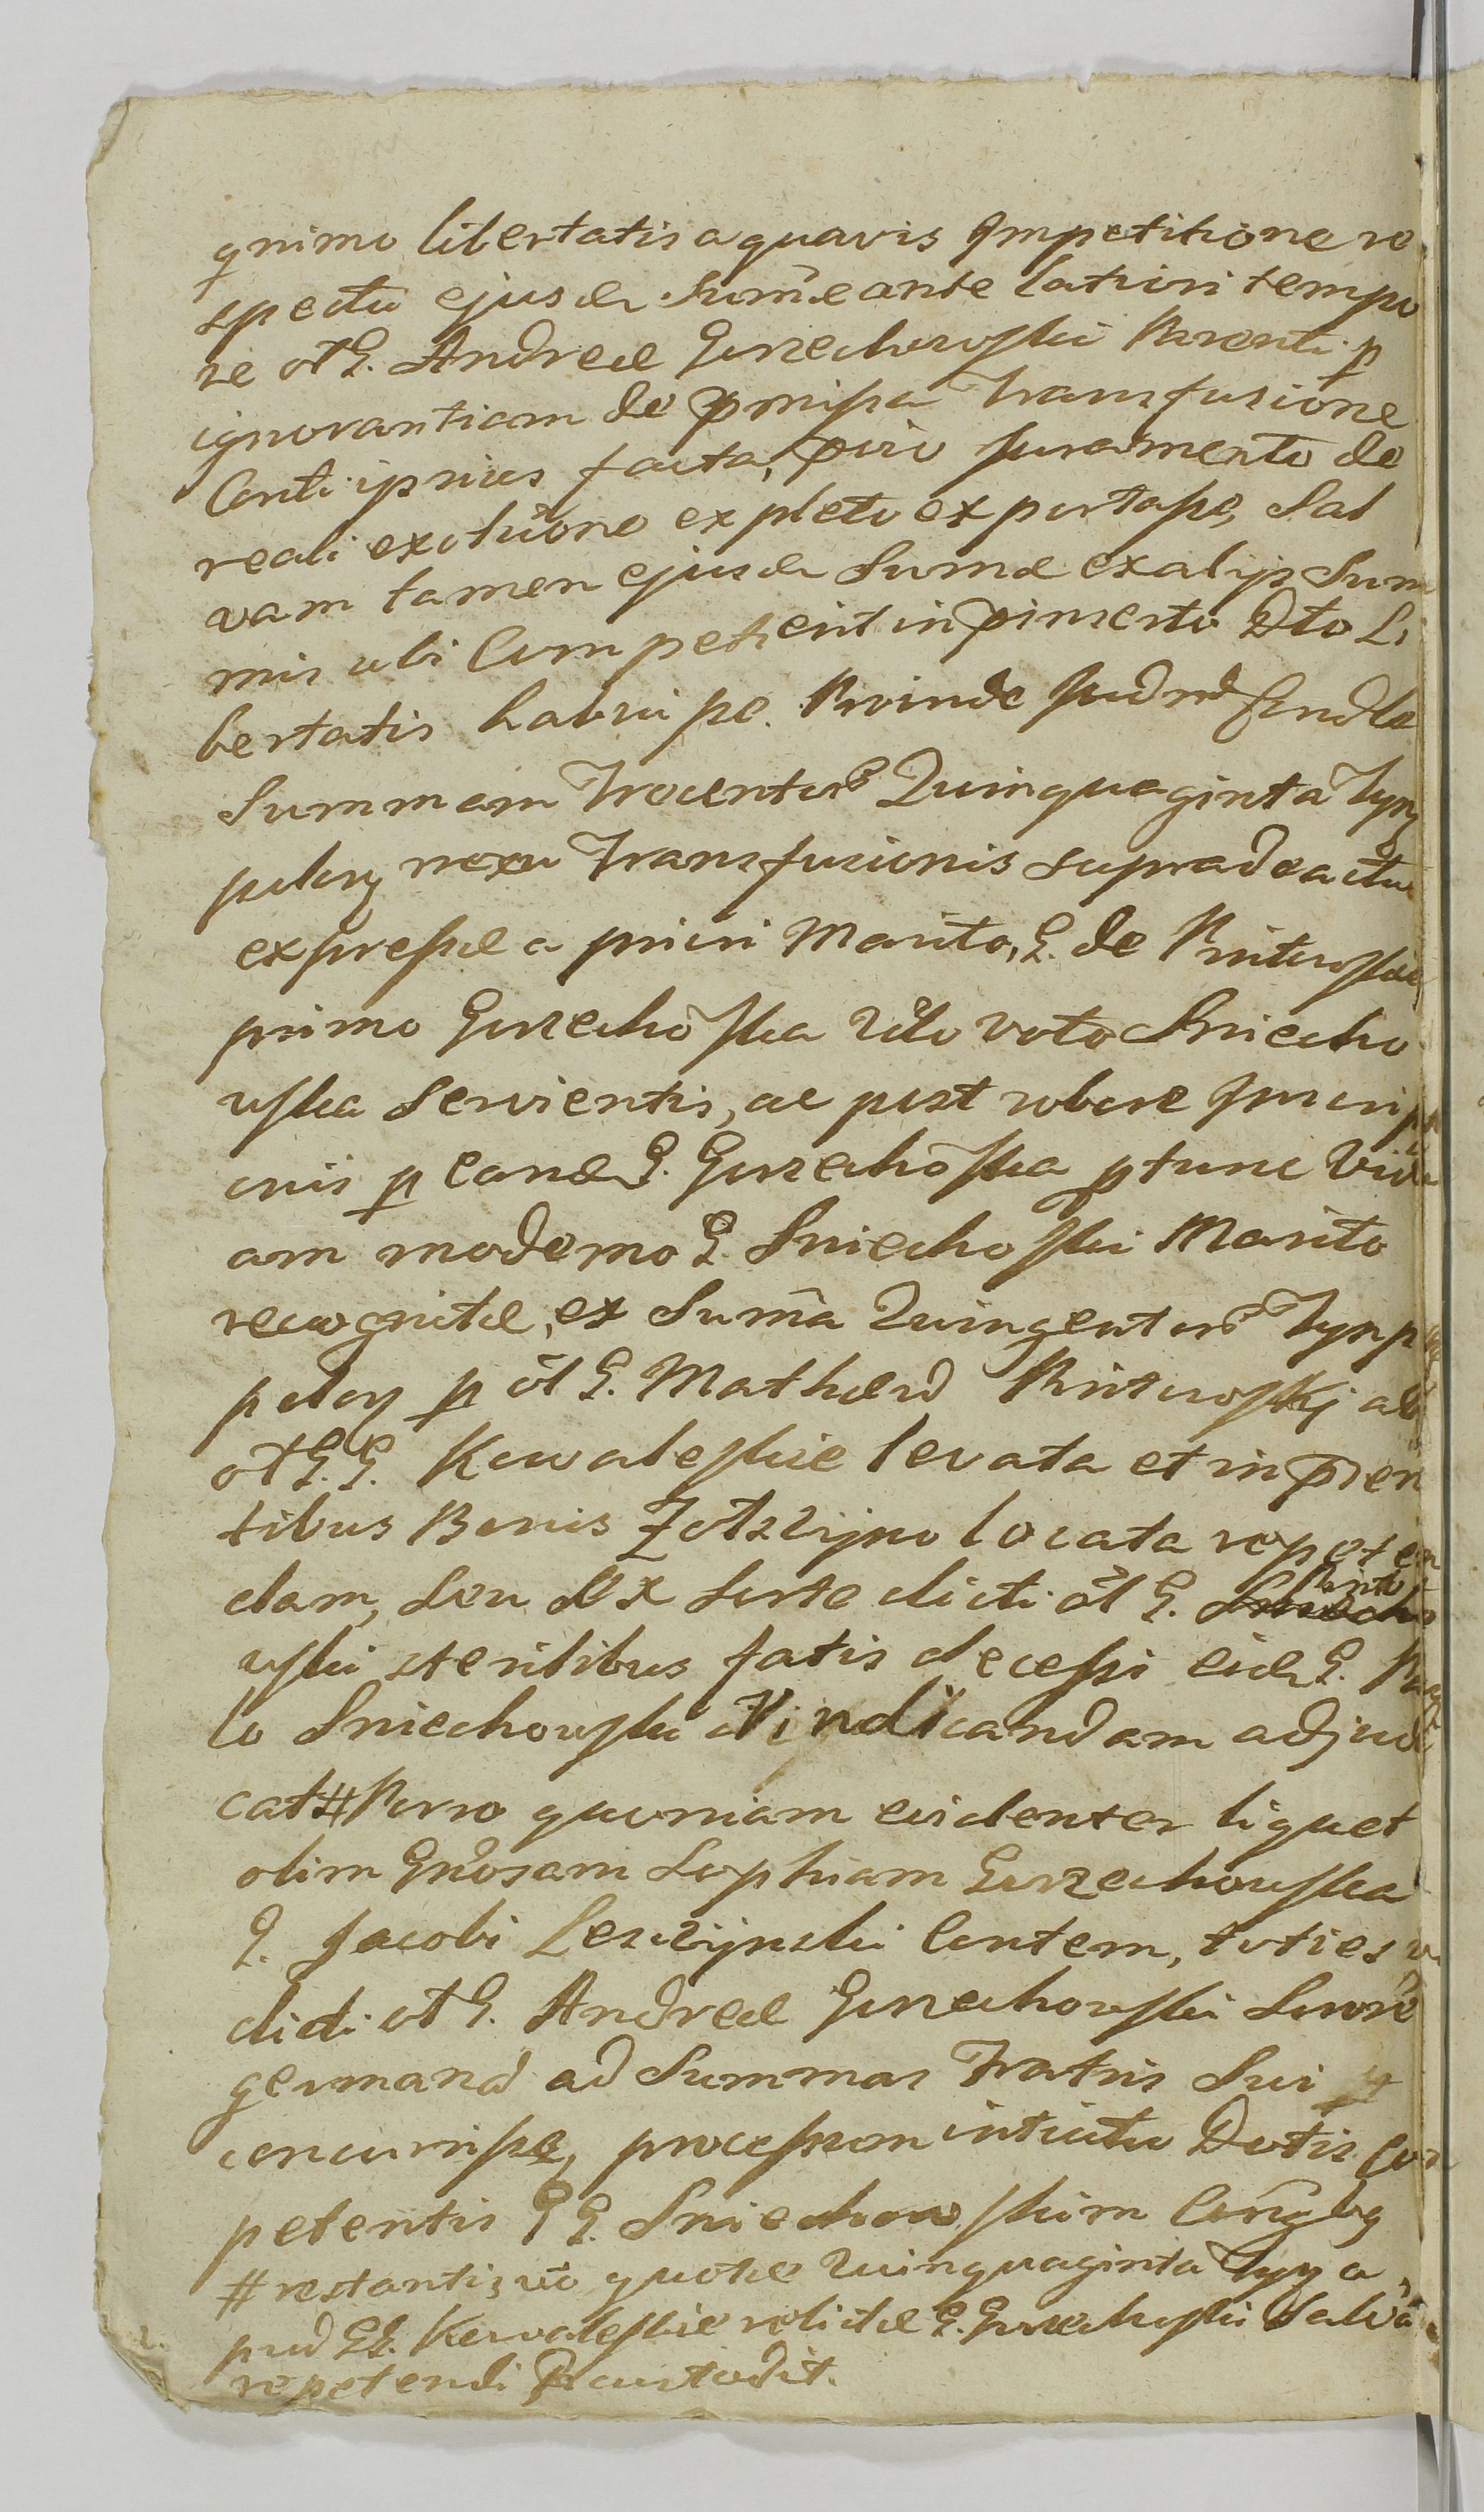 qnimo libertatis a quavis Impetitione re
spectu ejusd Sumæ ante latiori tempo
re ol G. Andreæ Gorzechowski Parenti p
ignorantiam de pmissa Transfusione
Conti ipsius facta, pvio Juramento de
reali exolutione expleto exportasse, Sal
vam tamen ejusd Sumæ ex alijs Sum
mis ubi Competierit in pinserto Dto Li
bertatis habuisse. Proinde Judm
Summam Trecentor Quinquaginta Tynf
pelorz nexu Transfusionis supradea ctu
expressæ a priori Marito, G. de Pintowskie
primo Gorzechoska 2do voto Sniecho
wska servientis, ac post robore Inscripti
onis p eand G. Gorzechoska ptunc Vidu
am moderno G. Sniechoski Marito
recognitæ, ex Suma Quingentor Tynp
pelorz p ol G. Mathæu Pintowskj ab
ol G. G. Kowaleskie levata et in psen
tibus Bonis Zolczijno locata repeten
dam, seu ex sorte dicti ol G. Pinto
wski sterilibus fatis decessi eid G. Pau
lo Sniechowski Vindicandam adjudi
cat # Porro quoniam evidenter liquet
olim Gnosam Sophiam Gorzechowska
G. Jacobi Leszczijnski Contem, toties
dicti ol G. Andreæ Gorzechowski Soror
germana ad Summas Fratris Sui p
concurrisse, processum intuitu Dotis Com
petentis G G. Sniechowskim
# restantis vo quotæ Quinquaginta Tyn a
pud GG. Kowaleskie relictæ G. Gorzechoski Salva
repetendi custodit.